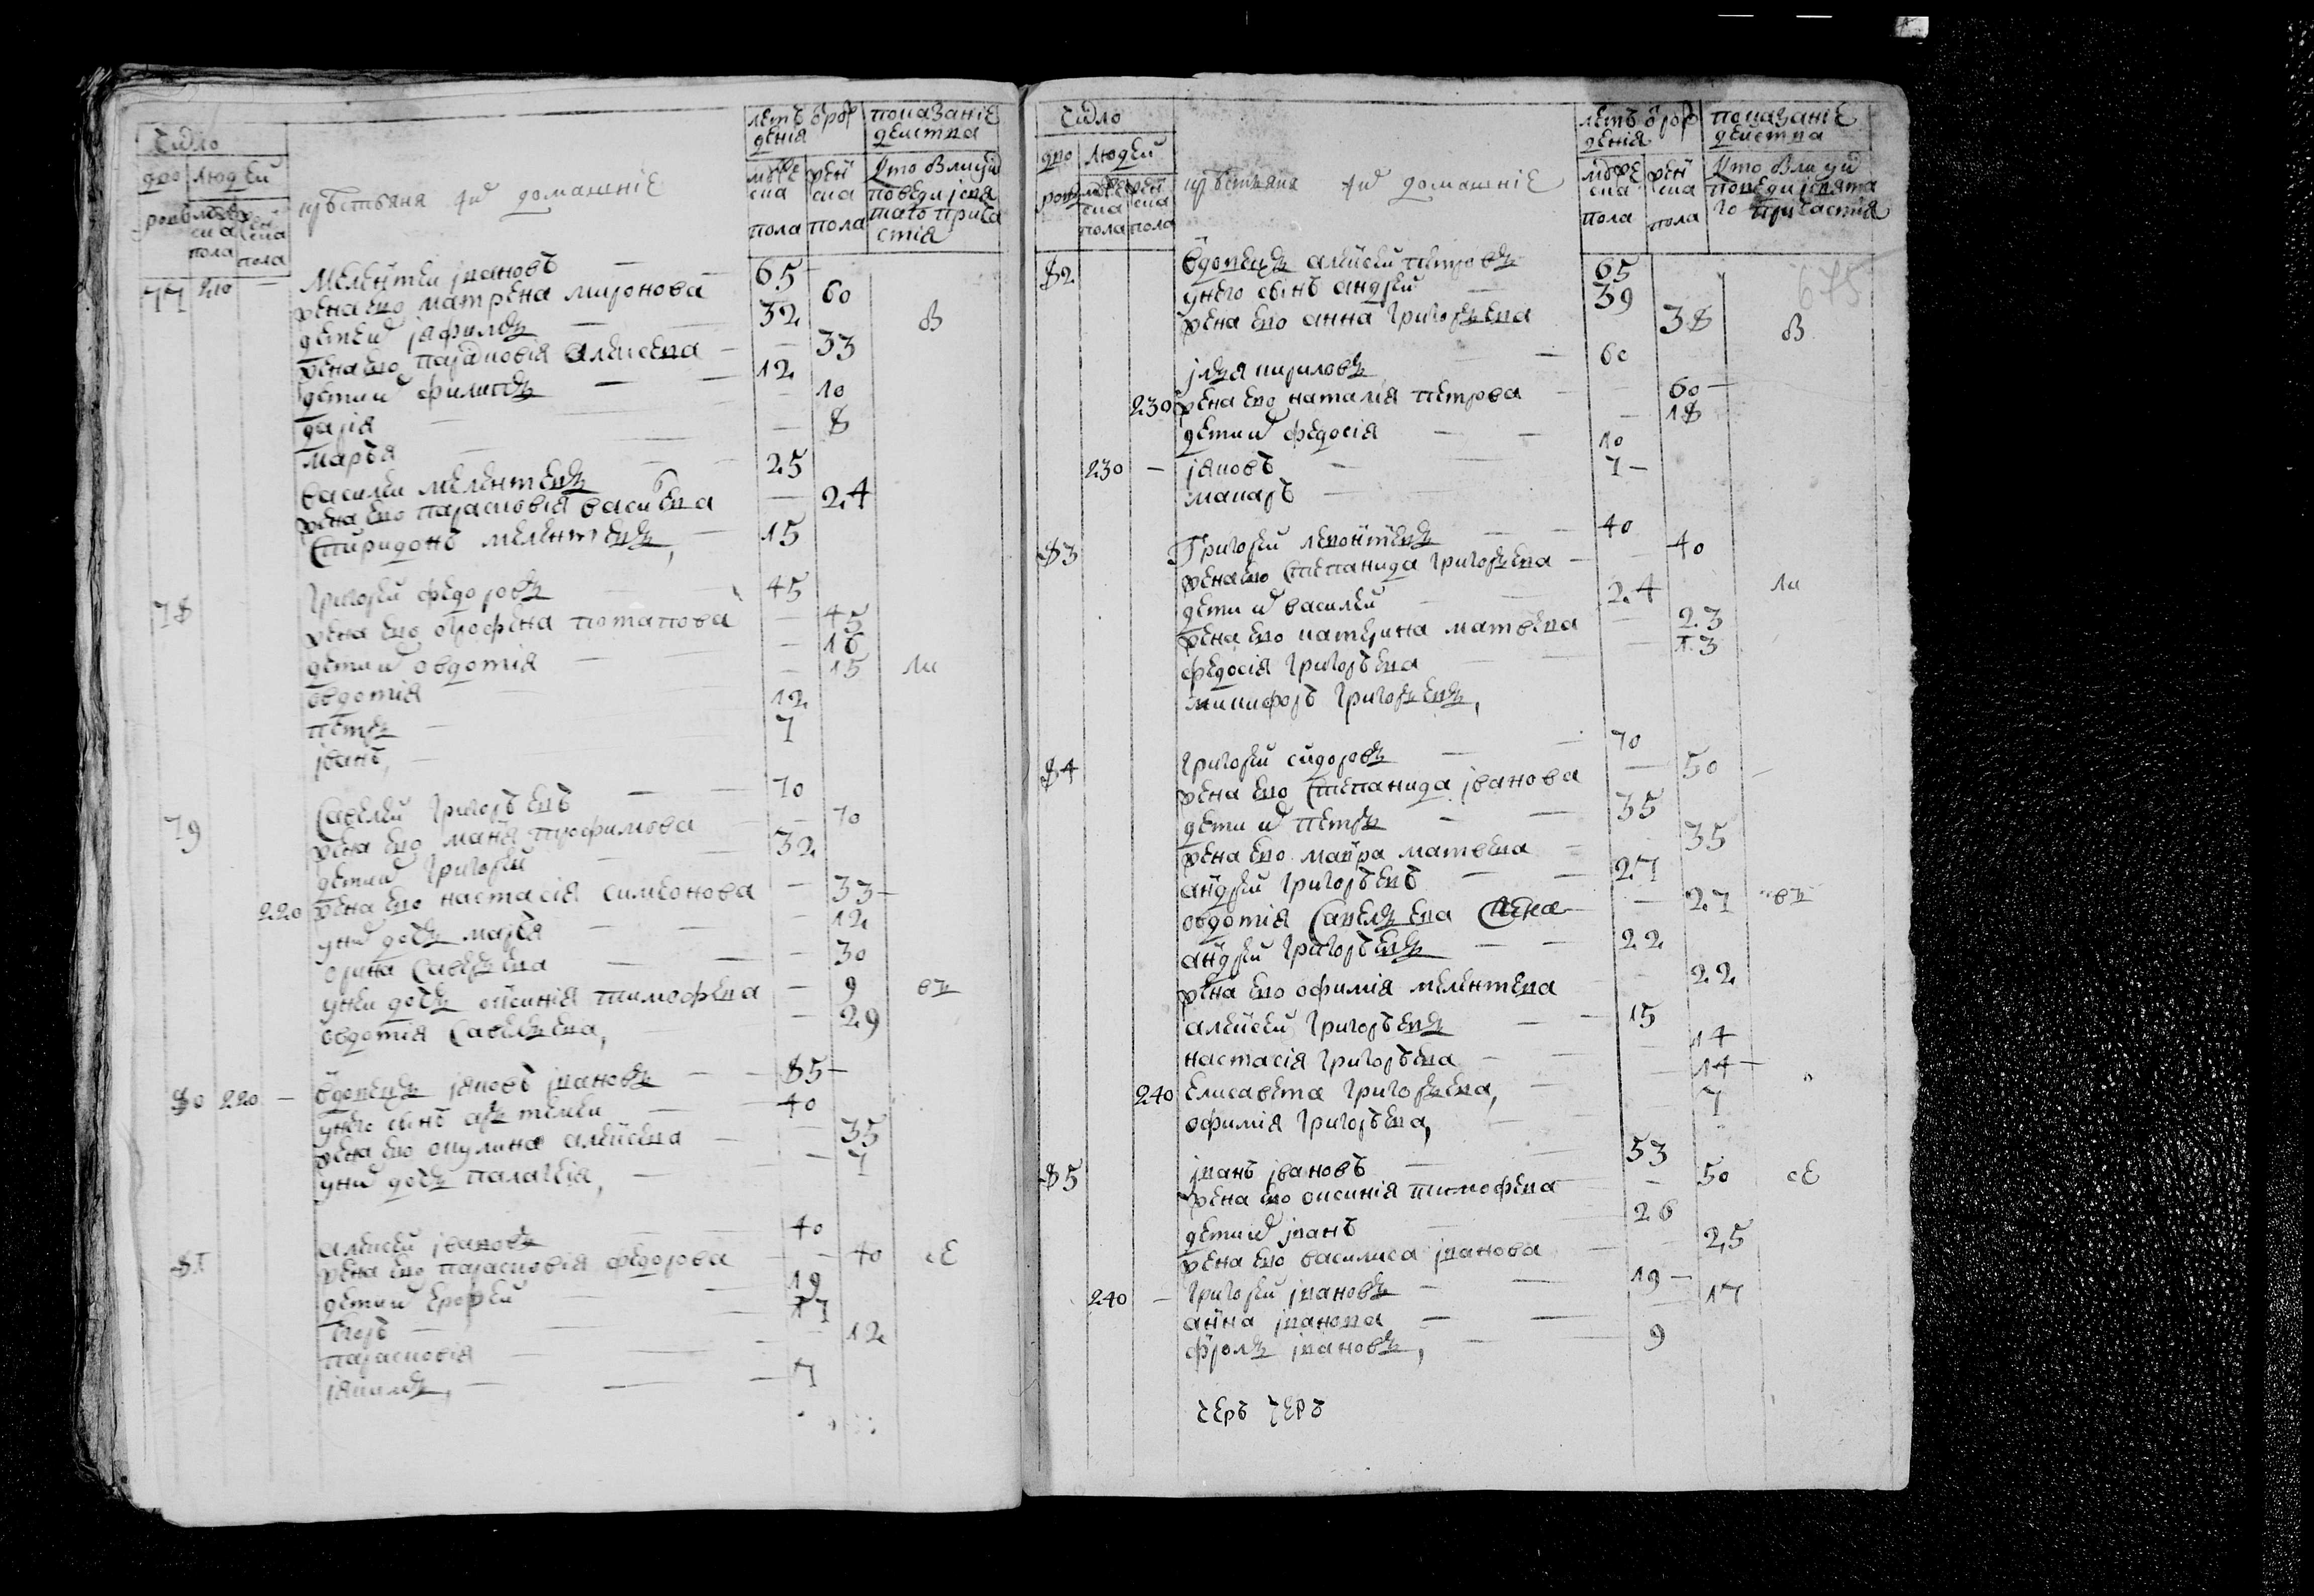 Число
дво
ров
людей
мужеска пола
женска пола
крестьяня и их домашние
летъ от рож
дения
мужеска
пола
женска
пола
показание
действа
Кто были у их
поведи и святаго причастия
77 210 — Мелентеи івановъ — 65
жена ево матрена миронова 60
дети их іафимъ — 32 В
жена ево парасковія алексеева — 33
дети их филипъ — 12
дарія — 10
марья — 8
василеи мелентевъ — 25
жена ево парасковія васильева — 24
Спиридонъ мелентевъ, — 15
78 Григореи федоровъ — 45
жена ево огрофена потапова — 45
дети их овдотія — 16
овдотія — 15 ли
петръ — 12
іванъ, — 7
79 Савелеи григорьевъ — 70
жена ево марія трофимова — 70
дети их григореи — 32
220 жена ево настасія симеонова — 33
у них дочь марья — 12
орина савельева — 30
у неи дочь оксинія тимофеева — 9 вп
овдотія савельева, — 29
80 220 — вдовецъ іаковъ івановъ — 85
у него сынъ артемеи — 40
жена ево окулина алексеева — 35
у них дочь палагеія, — 7
81 алексеи івановъ — 40
жена ево парасковія федорова — 40 сЕ
дети их ерофеи — 19
егоръ — 17
парасковія — 12
іакимъ, — 7
Число
дво
ров
людей
мужеска пола
женска пола
крестьяня и их домашние
летъ от рож
дения
мужеска
пола
женска
пола
показание
действа
Кто были у их
поведи и свята
го причастия
675
82 вдовецъ алексеи петровъ 65
у него сынъ андреи — 39
жена ево анна григорьева 38 В
ілья кириловъ — 60
230 жена ево наталія петрова — 60
дети их федосія — 18
230 — іаковъ — 10
макаръ — 7
83 Григореи леонтевъ — 40
жена ево степанида григорьева — 40
дети их василеи — 24 ли
жена ево катерина матвеева — 23
федосія григорьева — 13
никифоръ григорьевъ,
84 григореи сидоровъ — 70
жена ево степанида іванова — 50
дети их петръ — 35
жена ево мавра матвеева — 35
андреи григорьевъ — 27
овдотія савельева жена — 27 вп
андреи григорьевъ — 22
жена ево офимія мелентева 22
алексеи григорьевъ — 15
настасія григорьева — 14
240 елисавета григорьева, — 14
офимія григорьева, — 7
85 іванъ івановъ — 53
жена ево оксинія тимофеева — 50 сЕ
дети их іванъ 26
жена ево василиса іванова — 25
240 — григореи івановъ — 19
анна іванова — 17
фролъ івановъ, — 9
черъ черъ